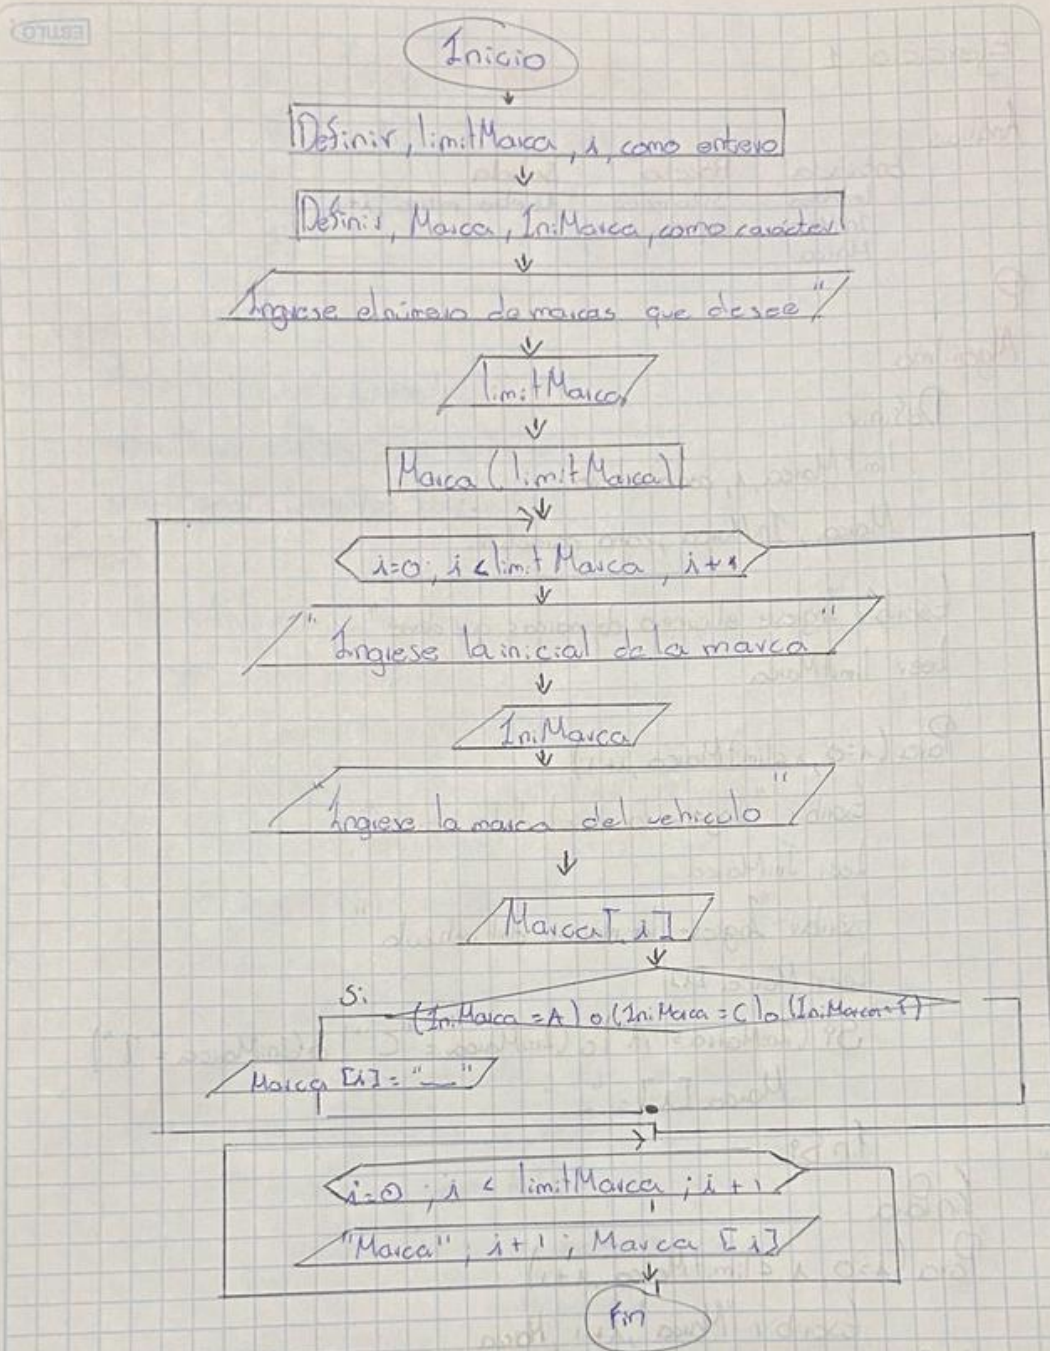 ESTILO
Inicio
Definir, limitMarca, i, como entero
Definir, Marca, IniMarca, como carácter
Ingrese el número de marcas que desee"
limitMarca
Marca (limitMarca)
i=0; i < limit Marca, i++
"Ingrese la inicial de la marca"
IniMarca
"Ingrese la marca del vehiculo"
Marca[i]
Si
(IniMarca = A) o (IniMarca = C) o (IniMarca=F)
Marca [i] = "__"
i=0 ; i < limitMarca ; i + 1
"Marca", i+1; Marca [i]
Fin